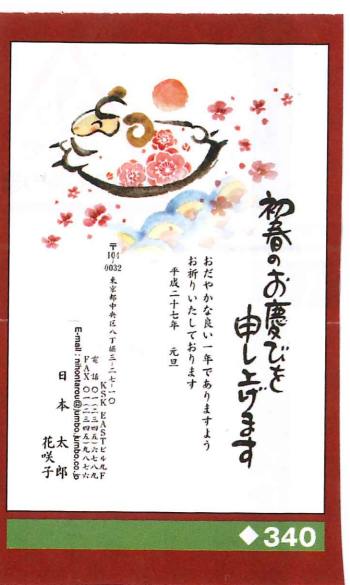 初春のお慶びを
申し上げます
おだやかな良い一年でありますよう
お祈りいたしております
平成二十七年 元旦
〒104-0032 東京都中央区八丁堀三-二七-一〇
KSK EASTビル九F
電話 〇一(二三四五)六七八九
FAX 〇一(二三四五)九八七六
E-mail : nihontarou@jumbo.jumbo.co.jp
日本 太郎
花咲子
◆340